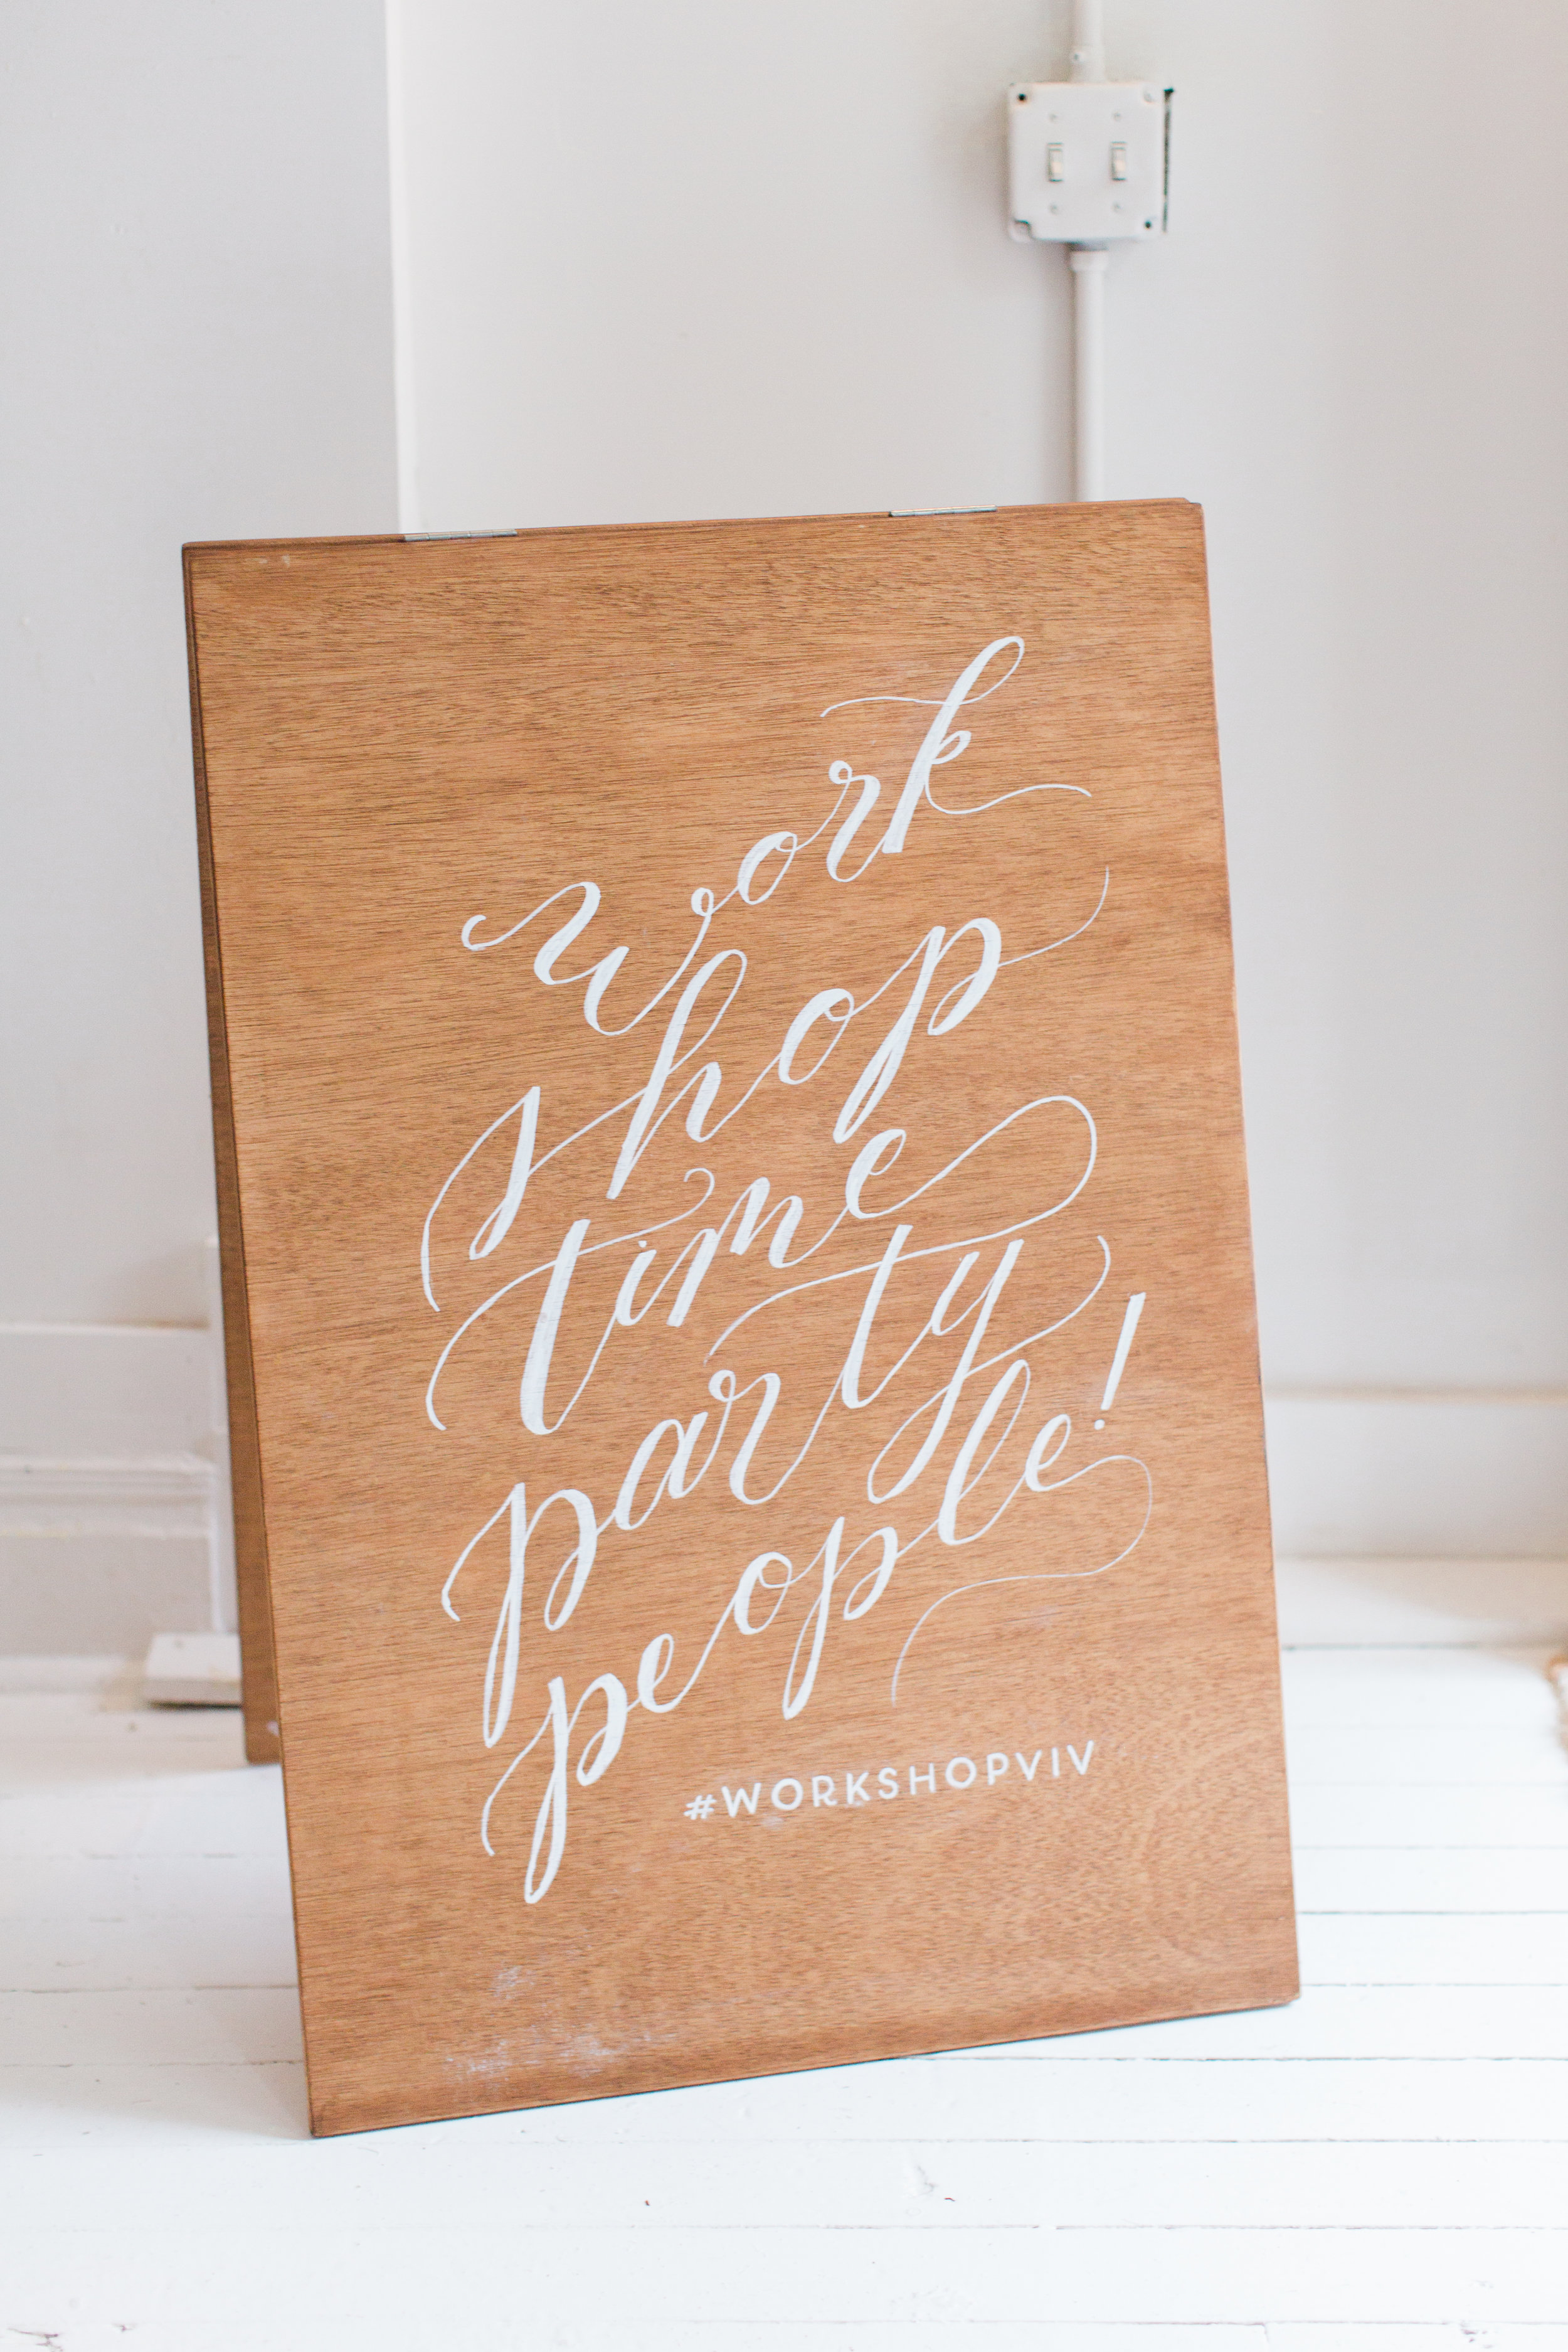 work
shop
time
party
people!
#WORKSHOPVIV